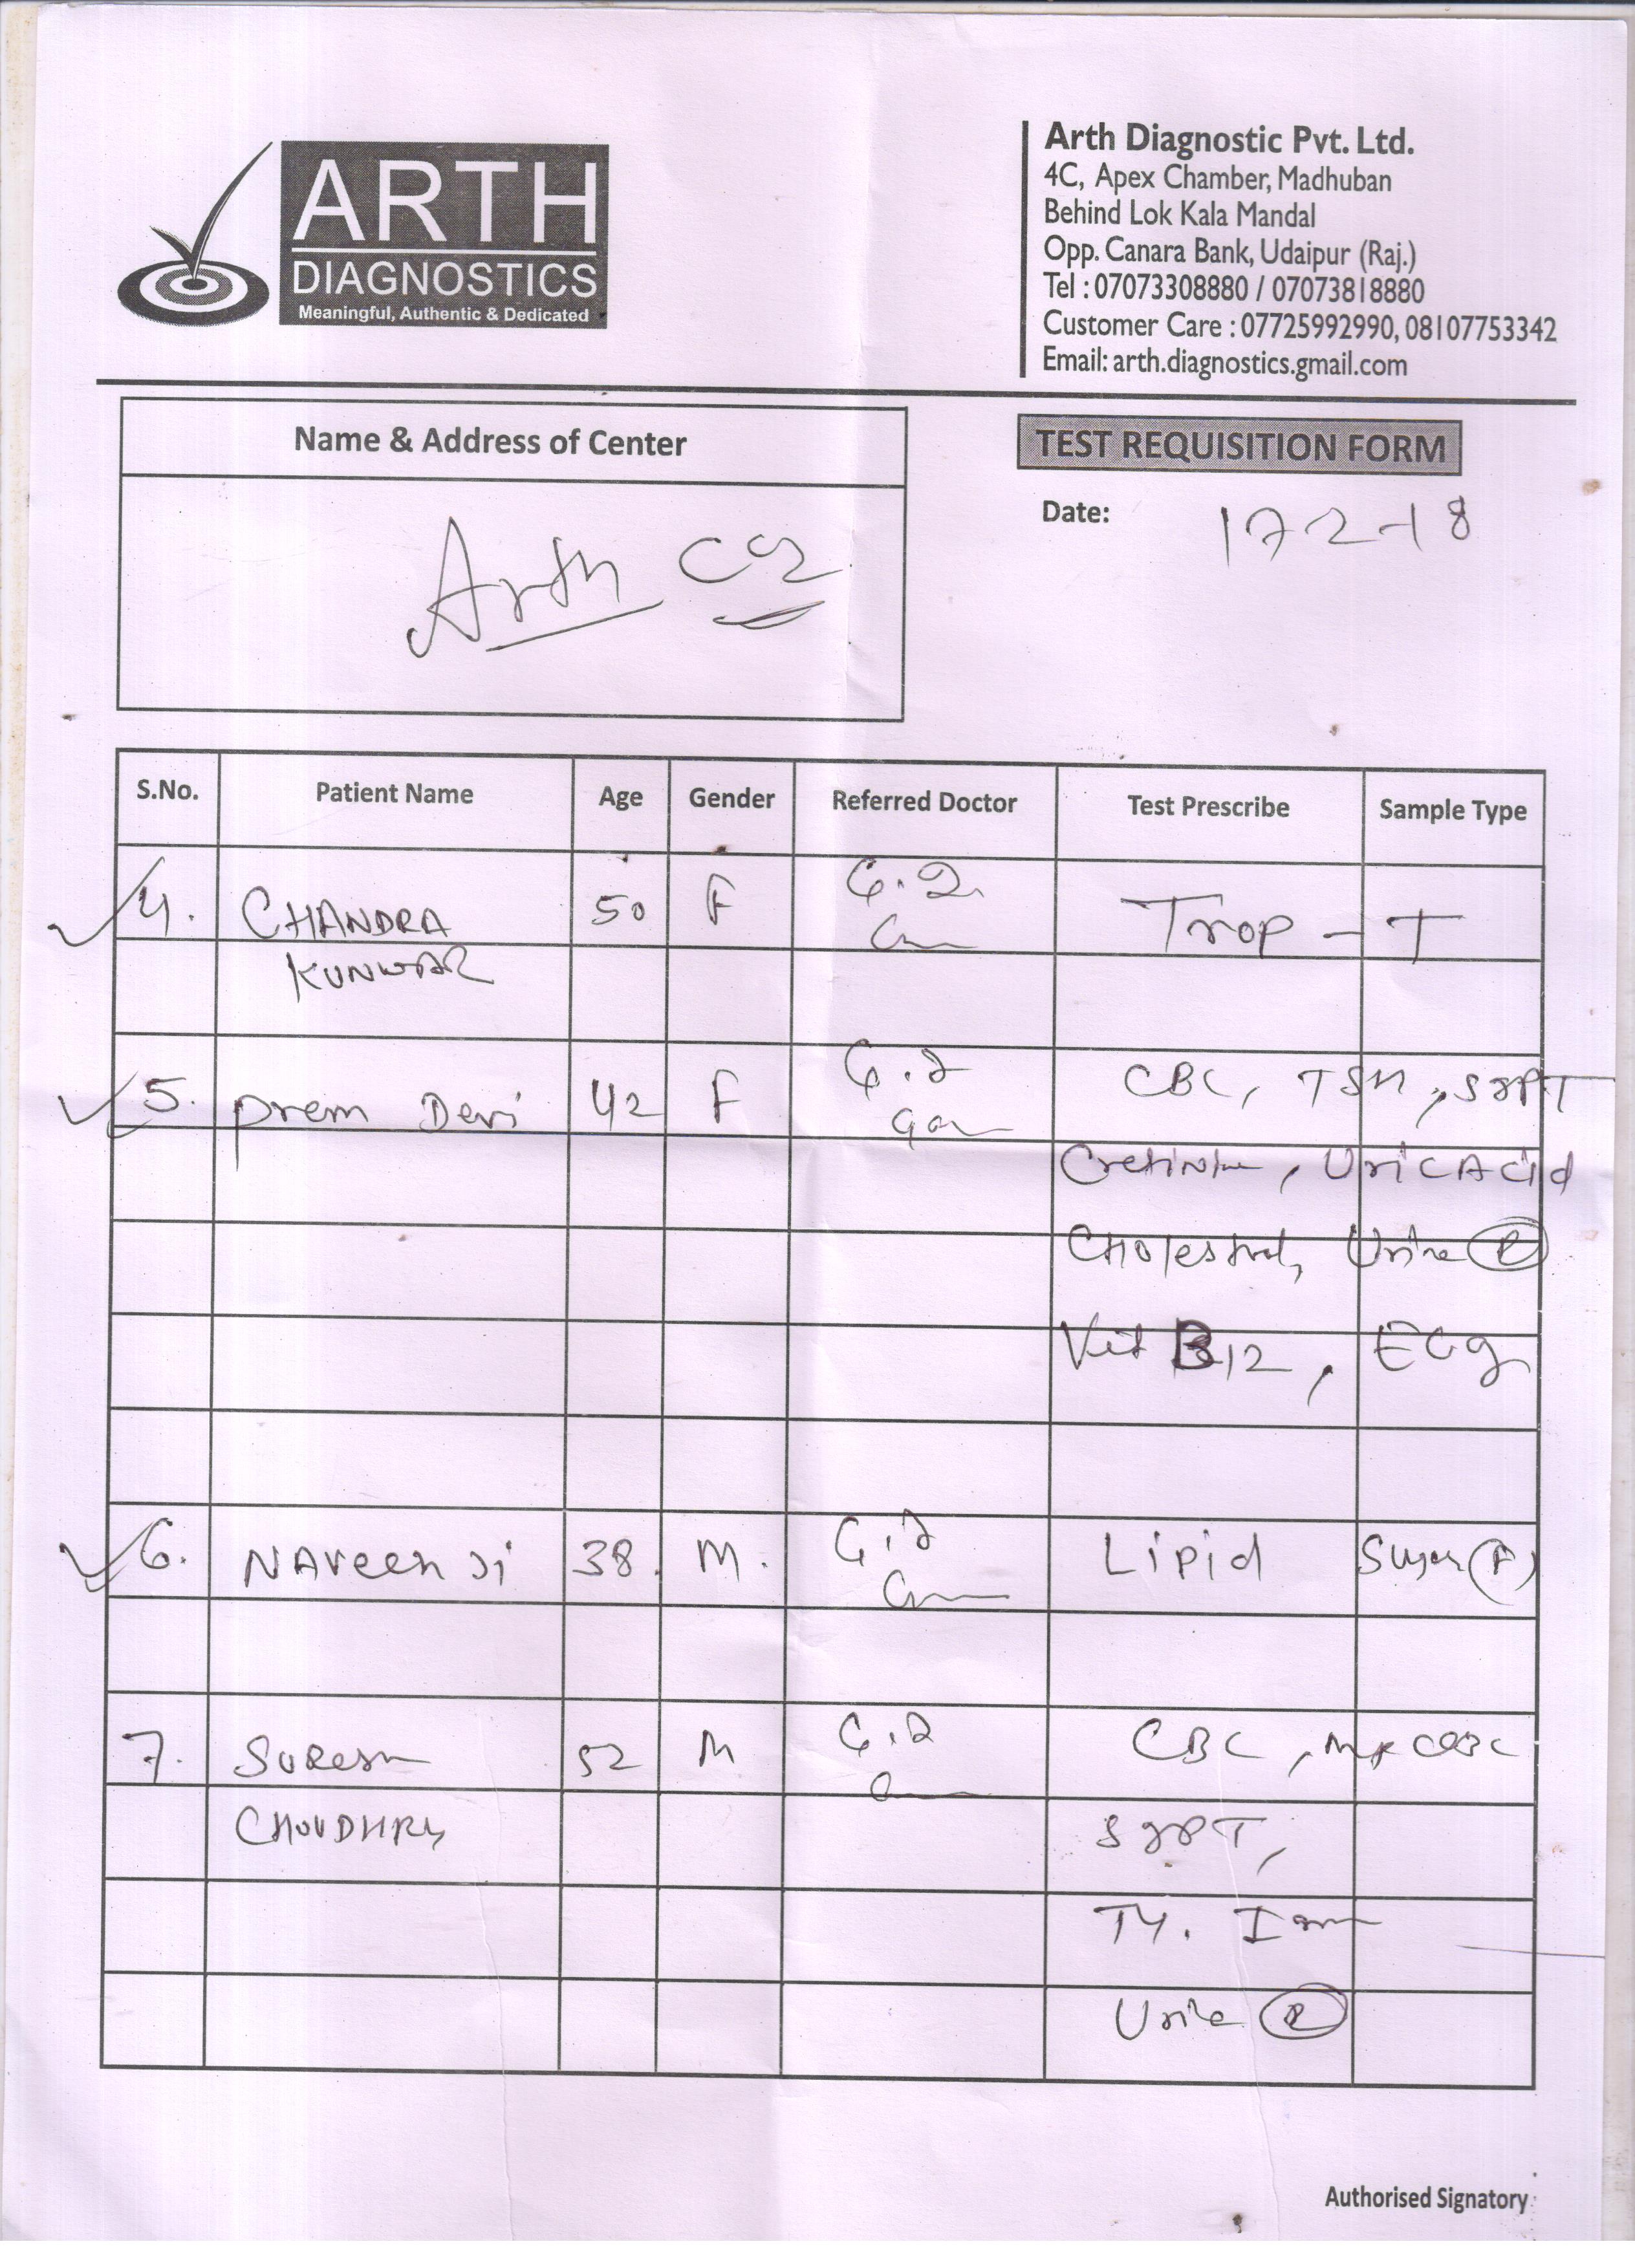 ARTH
DIAGNOSTICS
Meaningful, Authentic & Dedicated
Arth Diagnostic Pvt. Ltd.
4C, Apex Chamber, Madhuban
Behind Lok Kala Mandal
Opp. Canara Bank, Udaipur (Raj.)
Tel : 07073308880 / 07073818880
Customer Care : 07725992990, 08107753342
Email: arth.diagnostics.gmail.com
Name & Address of Center
Arth
TEST REQUISITION FORM
Date: 17 2-18
S.No. Patient Name Age Gender Referred Doctor Test Prescribe Sample Type
4. CHANDRA 50 F Trop - T
KUNWAR
5. Prem Devi 42 F CBC, TSH, SGPT
Uric Acid
Urine R
Vit B12, ECG
6. NAveen Ji 38. M. Lipid Sugar (F)
7. SURESH 52 M CBC,
CHOUDHRY SGPT,
Urine R
Authorised Signatory